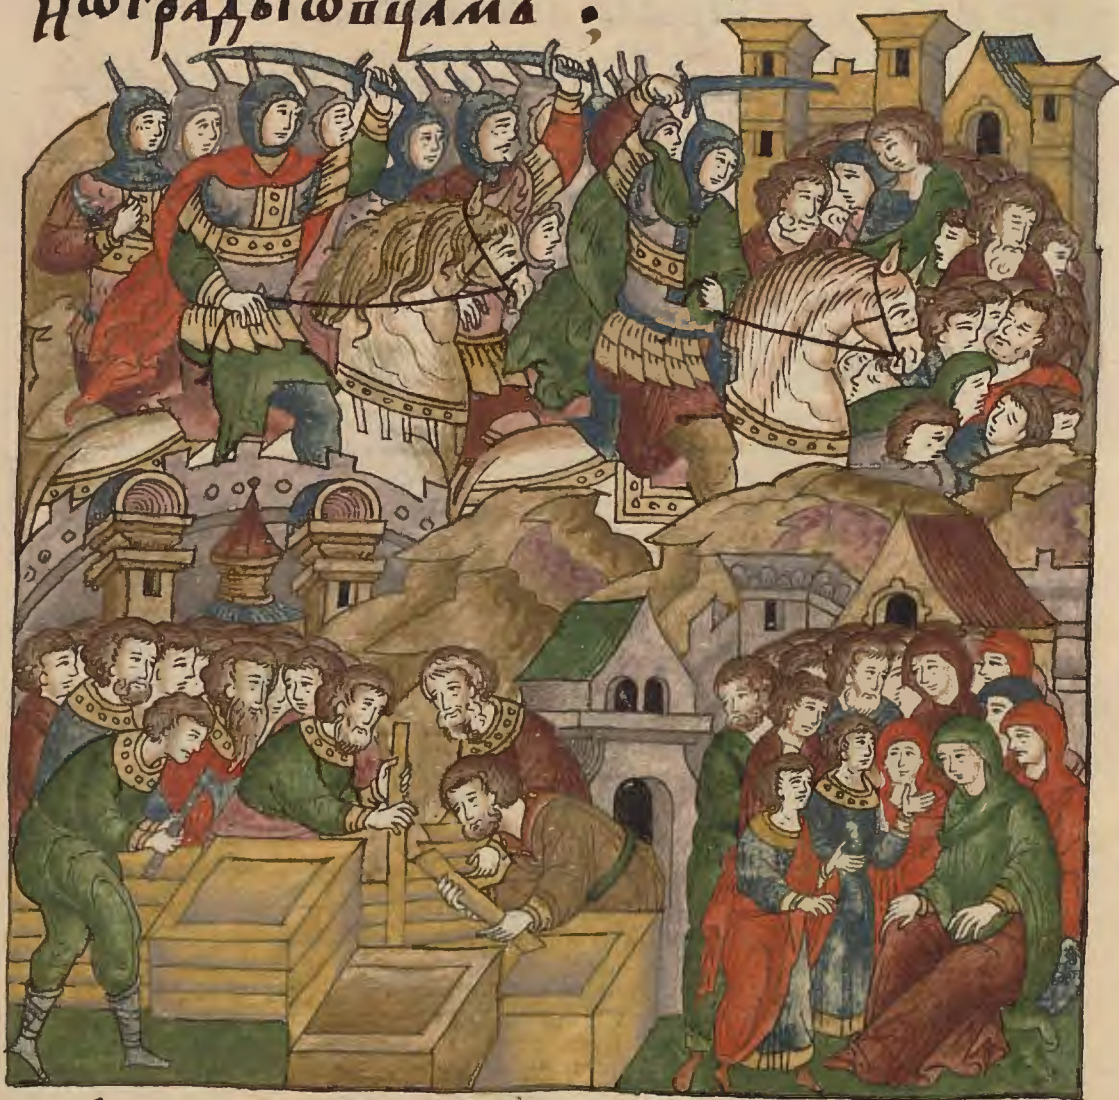 нѡграды ѡвцамъ :